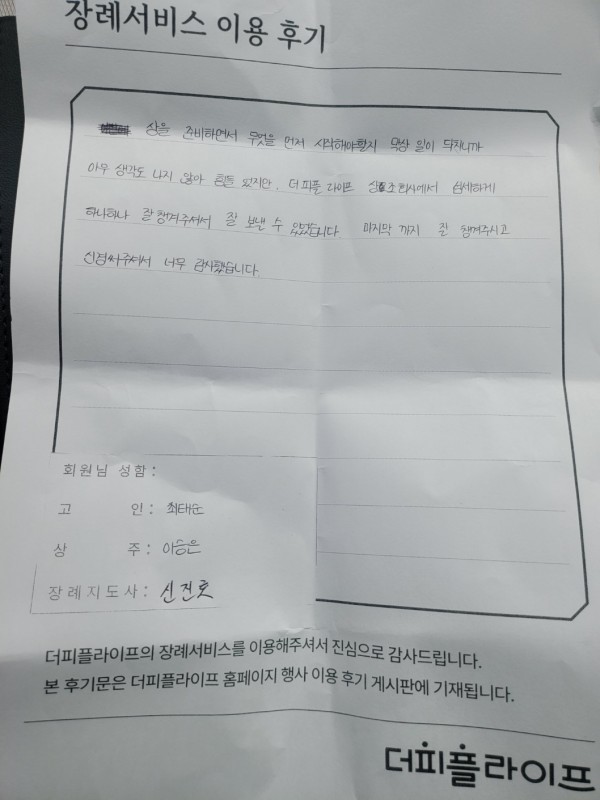 장례서비스 이용 후기
상을 준비하면서 무엇을 먼저 시작해야할지 막상 일이 닥치니까
아무 생각도 나지 않아 힘들었지만, 더피플 라이프 상조회사에서 섬세하게
하나하나 잘 챙겨주셔서 잘 보낼 수 있었습니다 마지막 까지 잘 챙겨주시고
신경써주셔서 너무 감사했습니다.
회원님 성함 :
고 인 : 최태순
상 주 : 이승은
장례지도사 : 신진호
더피플라이프의 장례서비스를 이용해주셔서 진심으로 감사드립니다.
본 후기문은 더피플라이프 홈페이지 행사 이용 후기 게시판에 기재됩니다.
더피플라이프